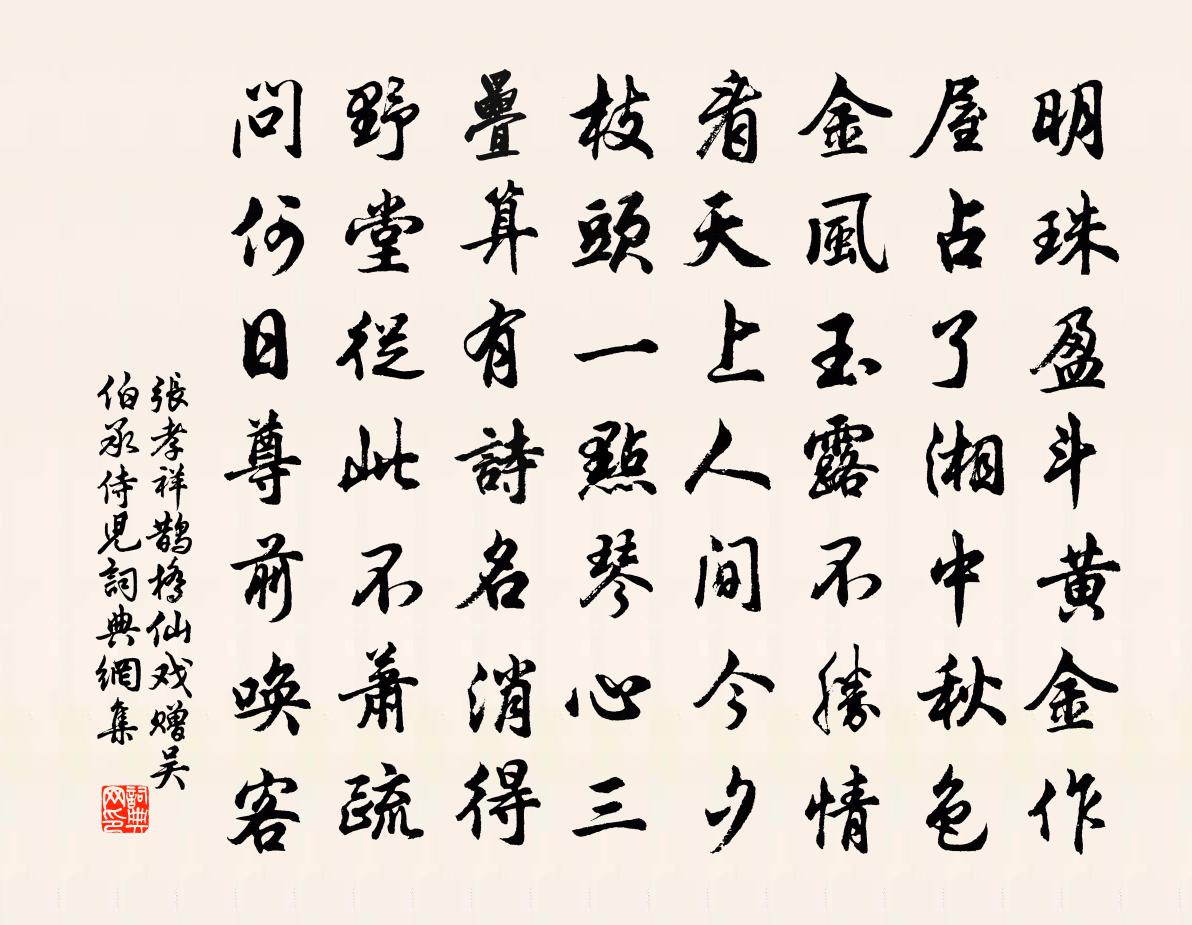 明珠盈斗黄金作
屋占了湘中秋色
金風玉露不勝情
看天上人間今夕
枝頭一點琴心三
疊算有詩名消得
野堂從此不蕭疏
問何日尊前喚客
張孝祥鵲橋仙戏赠吴
伯承侍児詞典網集
詞典网印